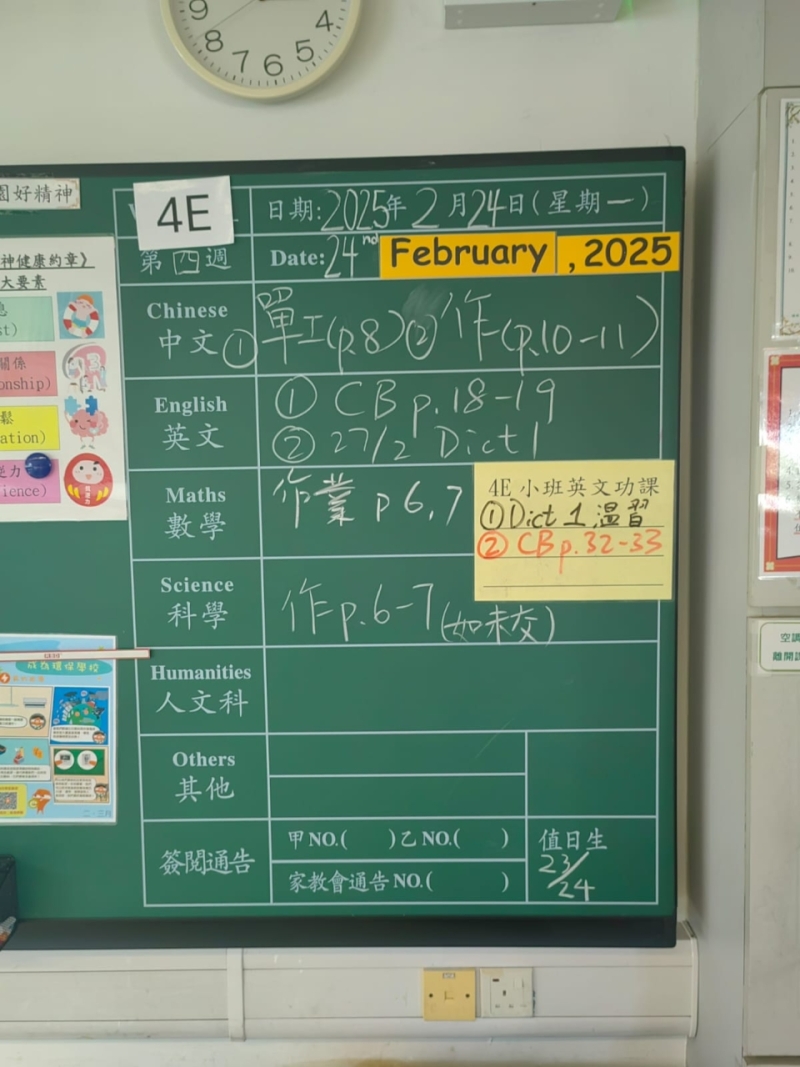 9
8
7
6
5
4
園好精神
4E
日期:2025年2月24日(星期一)
第四週
Date:24nd February , 2025
神健康約章》
大要素
st)
關係
onship)
鬆
ation)
力
ience)
Chinese
中文
①單工(p.8)②作(p.10-11)
English
英文
① CB p.18-19
② 27/2 Dict 1
Maths
數學
作業 p 6,7
4E 小班英文功課
①Dict 1 温習
② CB p.32-33
Science
科學
作p.6-7(如未交)
Humanities
人文科
Others
其他
簽閱通告
甲NO.( )乙NO.( )
家教會通告NO.( )
值日生
23/24
成為環保學校
二、三月
空調
離開